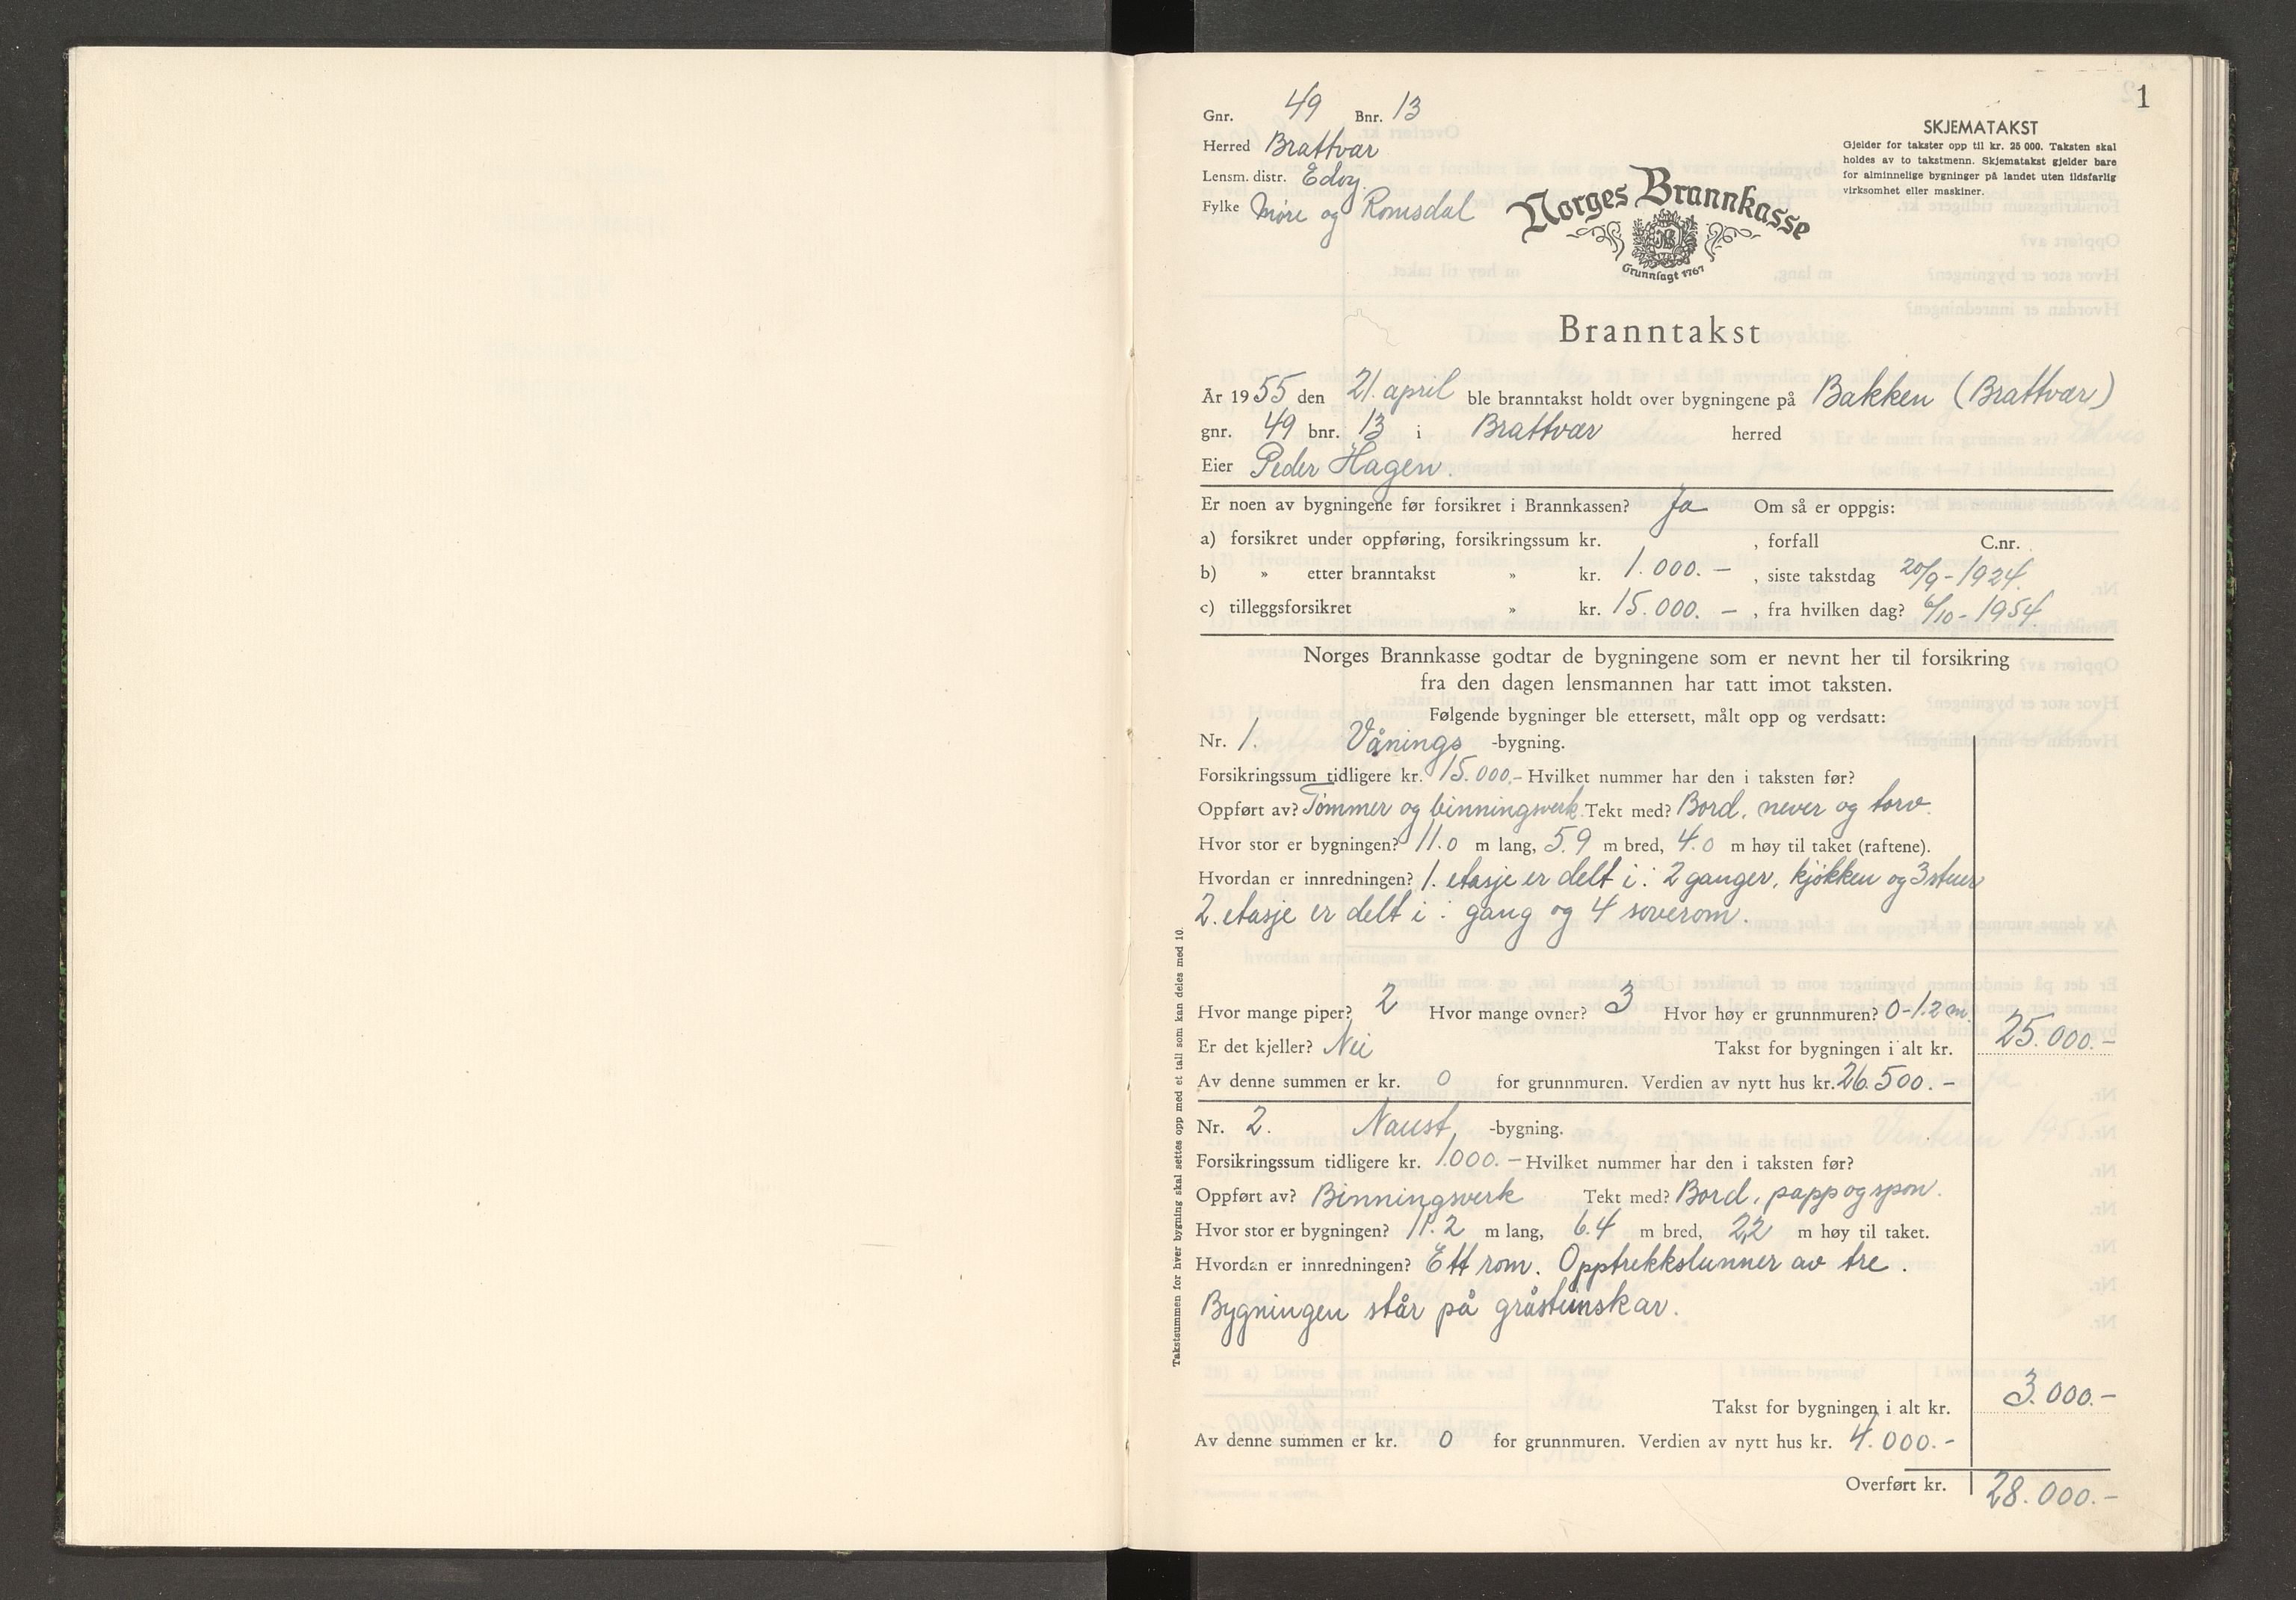 1
Gnr. 49 Bnr. 13
Herred Brattvær
Lensm. distr. Edøy.
Fylke Møre og Romsdal
SKJEMATAKST
Gjelder for takster opp til kr. 25 000. Taksten skal
holdes av to takstmenn. Skjematakst gjelder bare
for alminnelige bygninger på landet uten ildsfarlig
virksomhet eller maskiner.
Norges Brannkasse
Grunnlagt 1767
Branntakst
År 1955 den 21. april ble branntakst holdt over bygningene på Bakken (Brattvær)
gnr. 49 bnr. 13 i Brattvær herred
Eier Peder Hagen.
Er noen av bygningene før forsikret i Brannkassen? Ja Om så er oppgis:
a) forsikret under oppføring, forsikringssum kr. , forfall C.nr.
b) » etter branntakst » kr. 1.000.- , siste takstdag 20/9-1924.
c) tilleggsforsikret » kr. 15.000.- , fra hvilken dag? 6/10-1954.
Norges Brannkasse godtar de bygningene som er nevnt her til forsikring
fra den dagen lensmannen har tatt imot taksten.
Følgende bygninger ble ettersett, målt opp og verdsatt:
Nr. 1. Vånings -bygning.
Forsikringssum tidligere kr. 15.000.- Hvilket nummer har den i taksten før?
Oppført av? Tømmer og binningsverk. Tekt med? Bord, never og torv.
Hvor stor er bygningen? 11.0 m lang, 5.9 m bred, 4.0 m høy til taket (raftene).
Hvordan er innredningen? 1. etasje er delt i: 2 ganger, kjøkken og 3 stuer
2. etasje er delt i: gang og 4 soverom.
Hvor mange piper? 2 Hvor mange ovner? 3 Hvor høy er grunnmuren? 0-1.2 m.
Er det kjeller? Nei Takst for bygningen i alt kr. 25.000.-
Av denne summen er kr. 0 for grunnmuren. Verdien av nytt hus kr. 26.500.-
Nr. 2. Naust, -bygning.
Forsikringssum tidligere kr. 1.000.- Hvilket nummer har den i taksten før?
Oppført av? Binningsverk Tekt med? Bord, papp og spon.
Hvor stor er bygningen? 11.2 m lang, 6.4 m bred, 2,2 m høy til taket.
Hvordan er innredningen? Ett rom. Opptrekkslunner av tre.
Bygningen står på gråsteinskar.
Takst for bygningen i alt kr. 3.000.-
Av denne summen er kr. 0 for grunnmuren. Verdien av nytt hus kr. 4.000.-
Overført kr. 28.000.-
Takstsummen for hver bygning skal settes opp med et tall som kan deles med 10.